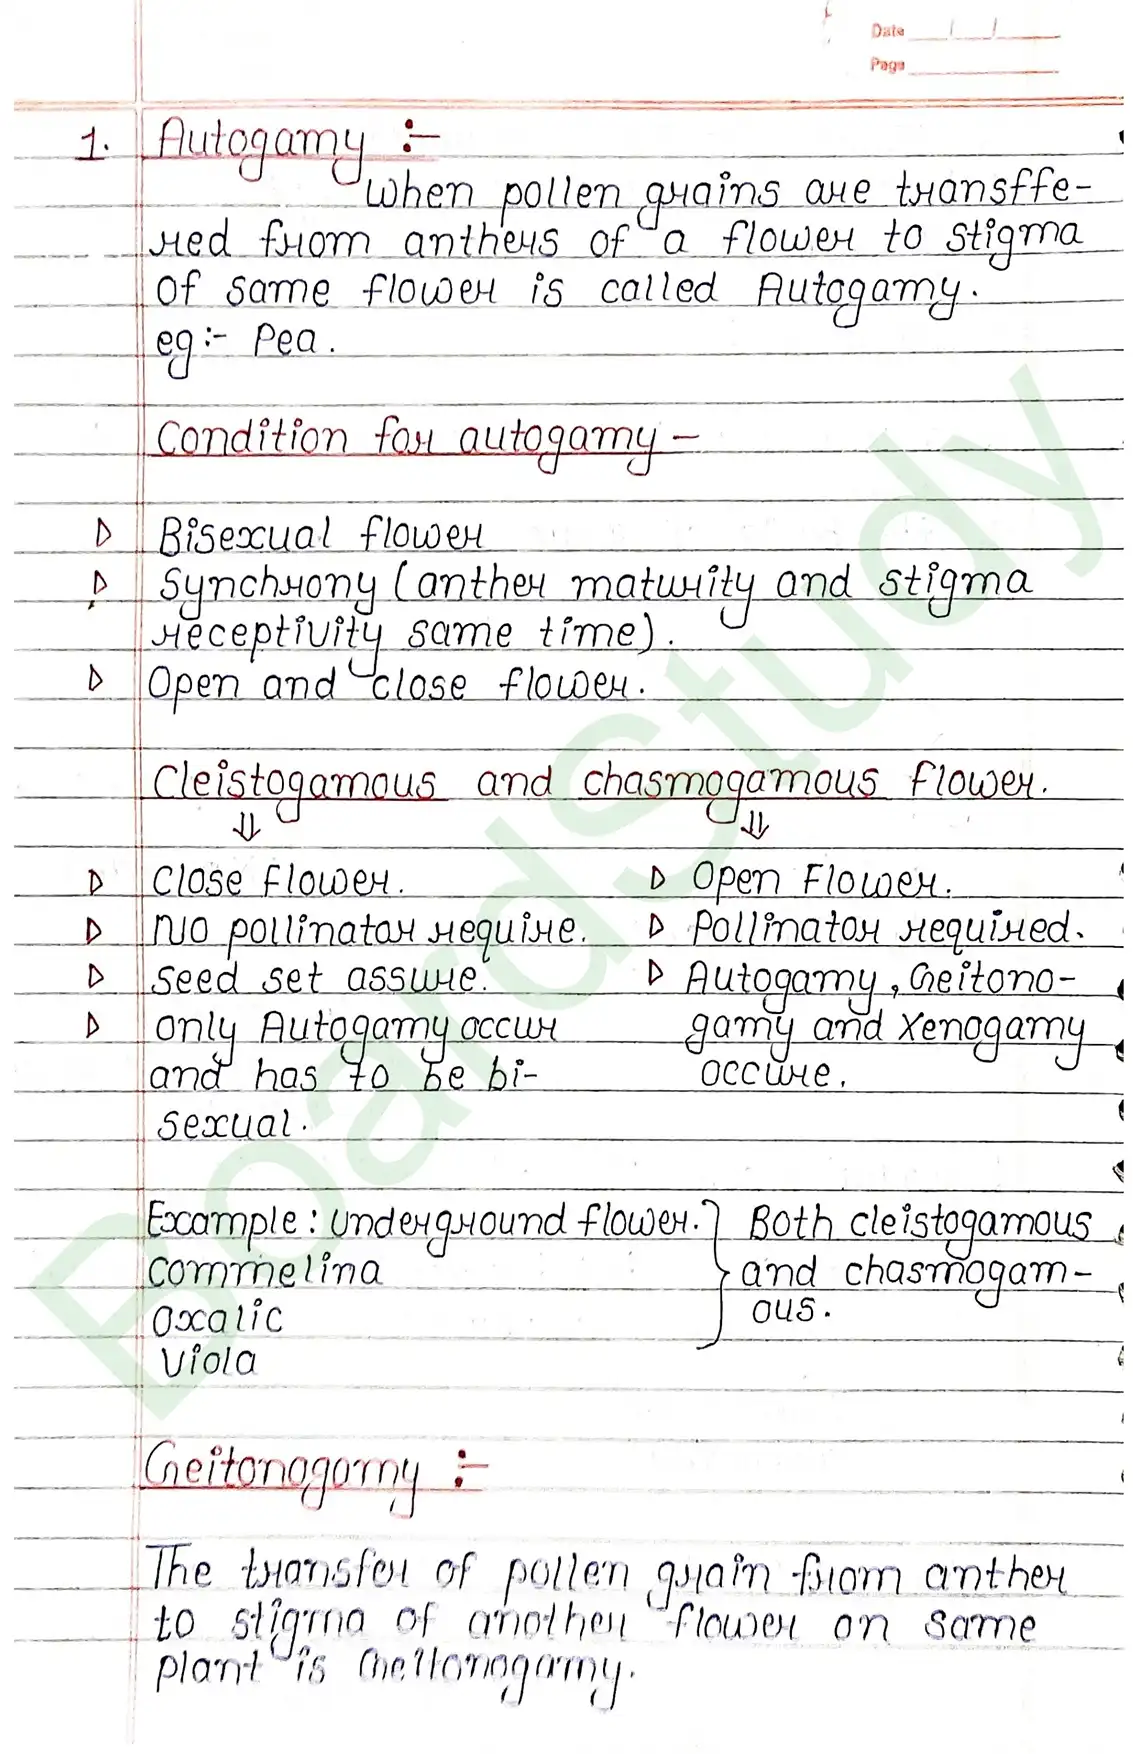 Date
Page
1. Autogamy :-
When pollen grains are transffe-
red from anthers of a flower to stigma
of same flower is called Autogamy.
eg :- Pea.
Condition for autogamy -
Bisexual flower
Synchrony (anther maturity and stigma
receptivity same time).
Open and close flower.
Cleistogamous and chasmogamous Flower.
⇓ ⇓
Close Flower. Open Flower.
No pollinator require. Pollinator required.
seed set assure. Autogamy, Geitono-
only Autogamy occur gamy and Xenogamy
and has to be bi- occure.
sexual.
Example : Underground flower. Both cleistogamous
commelina and chasmogam-
oxalic ous.
viola
Geitonogamy :-
The transfer of pollen grain from anther
to stigma of another flower on same
plant is Geitonogamy.
BoardStudy